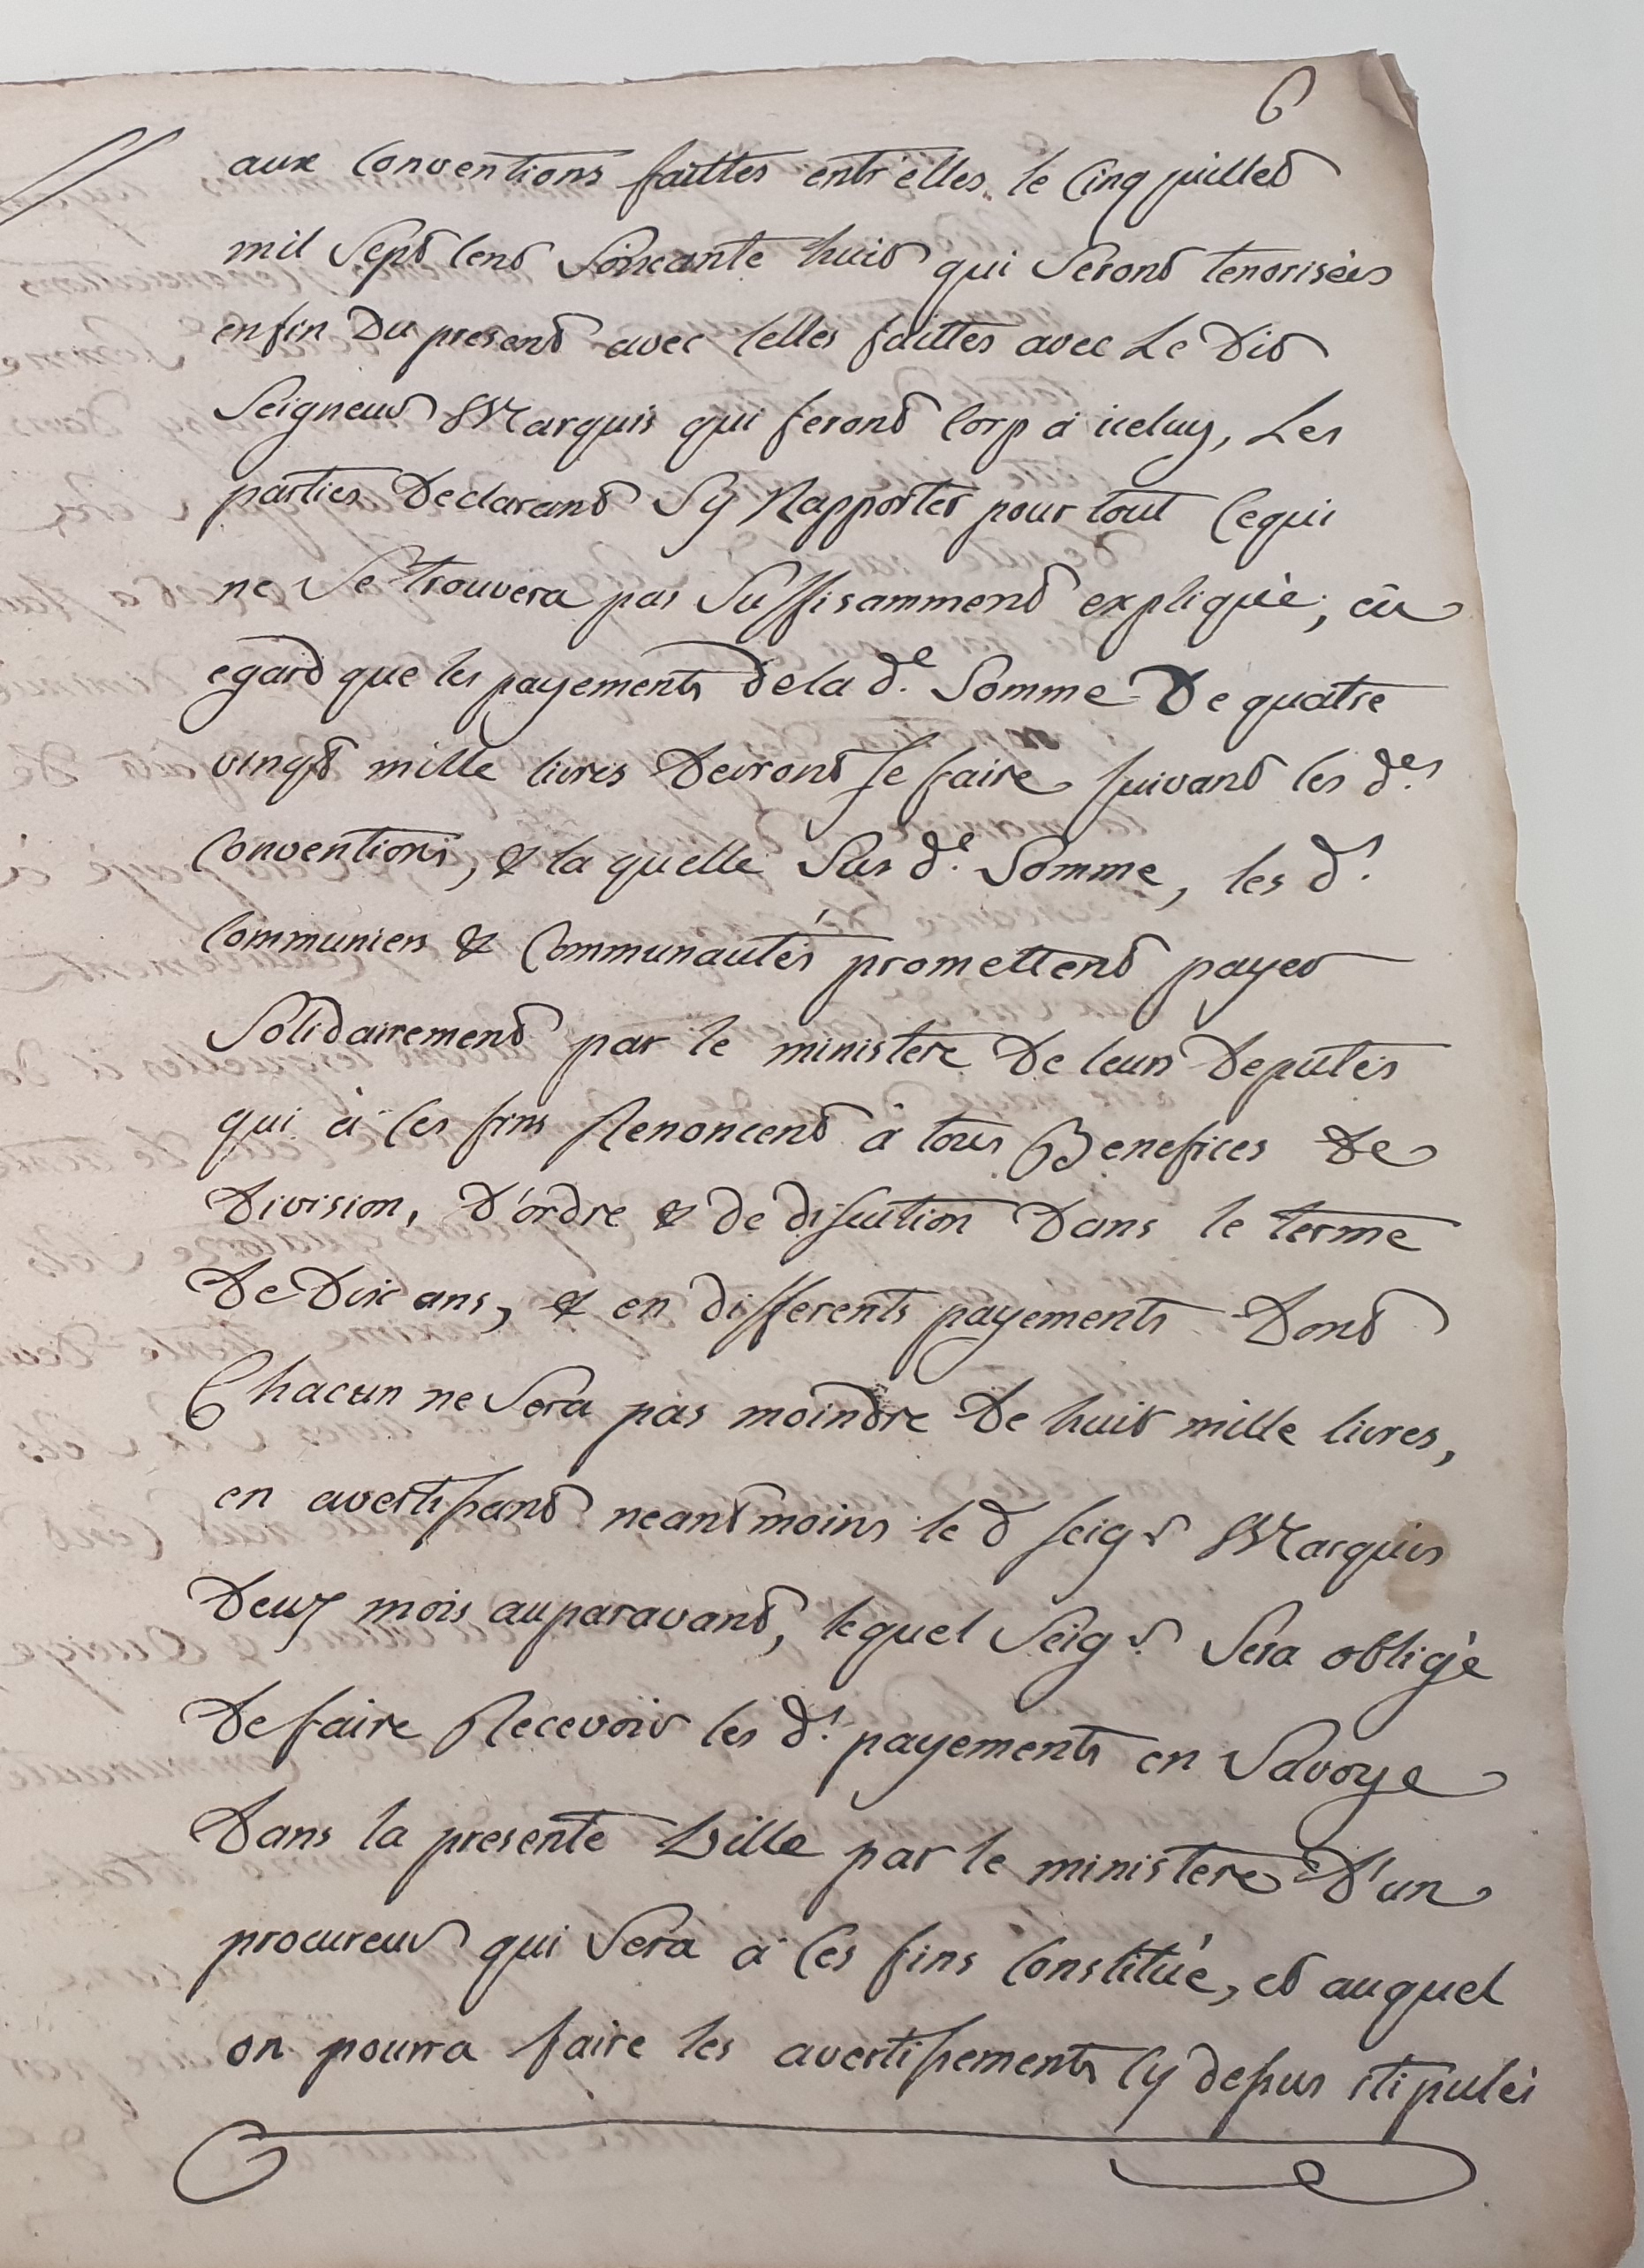 6
aux Conventions faittes entr'elles le Cinq juillet
mil Sept Cent Soixante huit qui Seront tenorisées
enfin Du present avec Celles faittes avec Le Dit
Seigneur Marquis qui feront Corp à iceluy, Les
parties Declarant Sy Rapporter pour tout Cequi
ne Se trouvera pas Suffisamment expliqué, eû
egard que les payements Dela d.e Somme De quatre
vingt mille livres Devront se faire suivant les d.es
Conventions, & la quelle Sus d.e Somme, les d.s
Communiers & Communautés promettent payer
Solidairement par le ministere De leurs Deputés
qui à Ces fins Renoncent à tous Benefices De
Division, D'ordre & de discution Dans le terme
De Dix ans, & en differents payements Dont
Chacun ne Sera pas moindre De huit mille livres,
en avertissant neantmoins le d seigr Marquis
Deux mois auparavant, lequel Seigr. Sera obligé
De faire Recevoir les d.s payements en Savoye
Dans la presente Ville par le ministere D'un
procureur qui Sera à Ces fins Constitué, et auquel
on pourra faire les avertissements Cy dessus stipulés